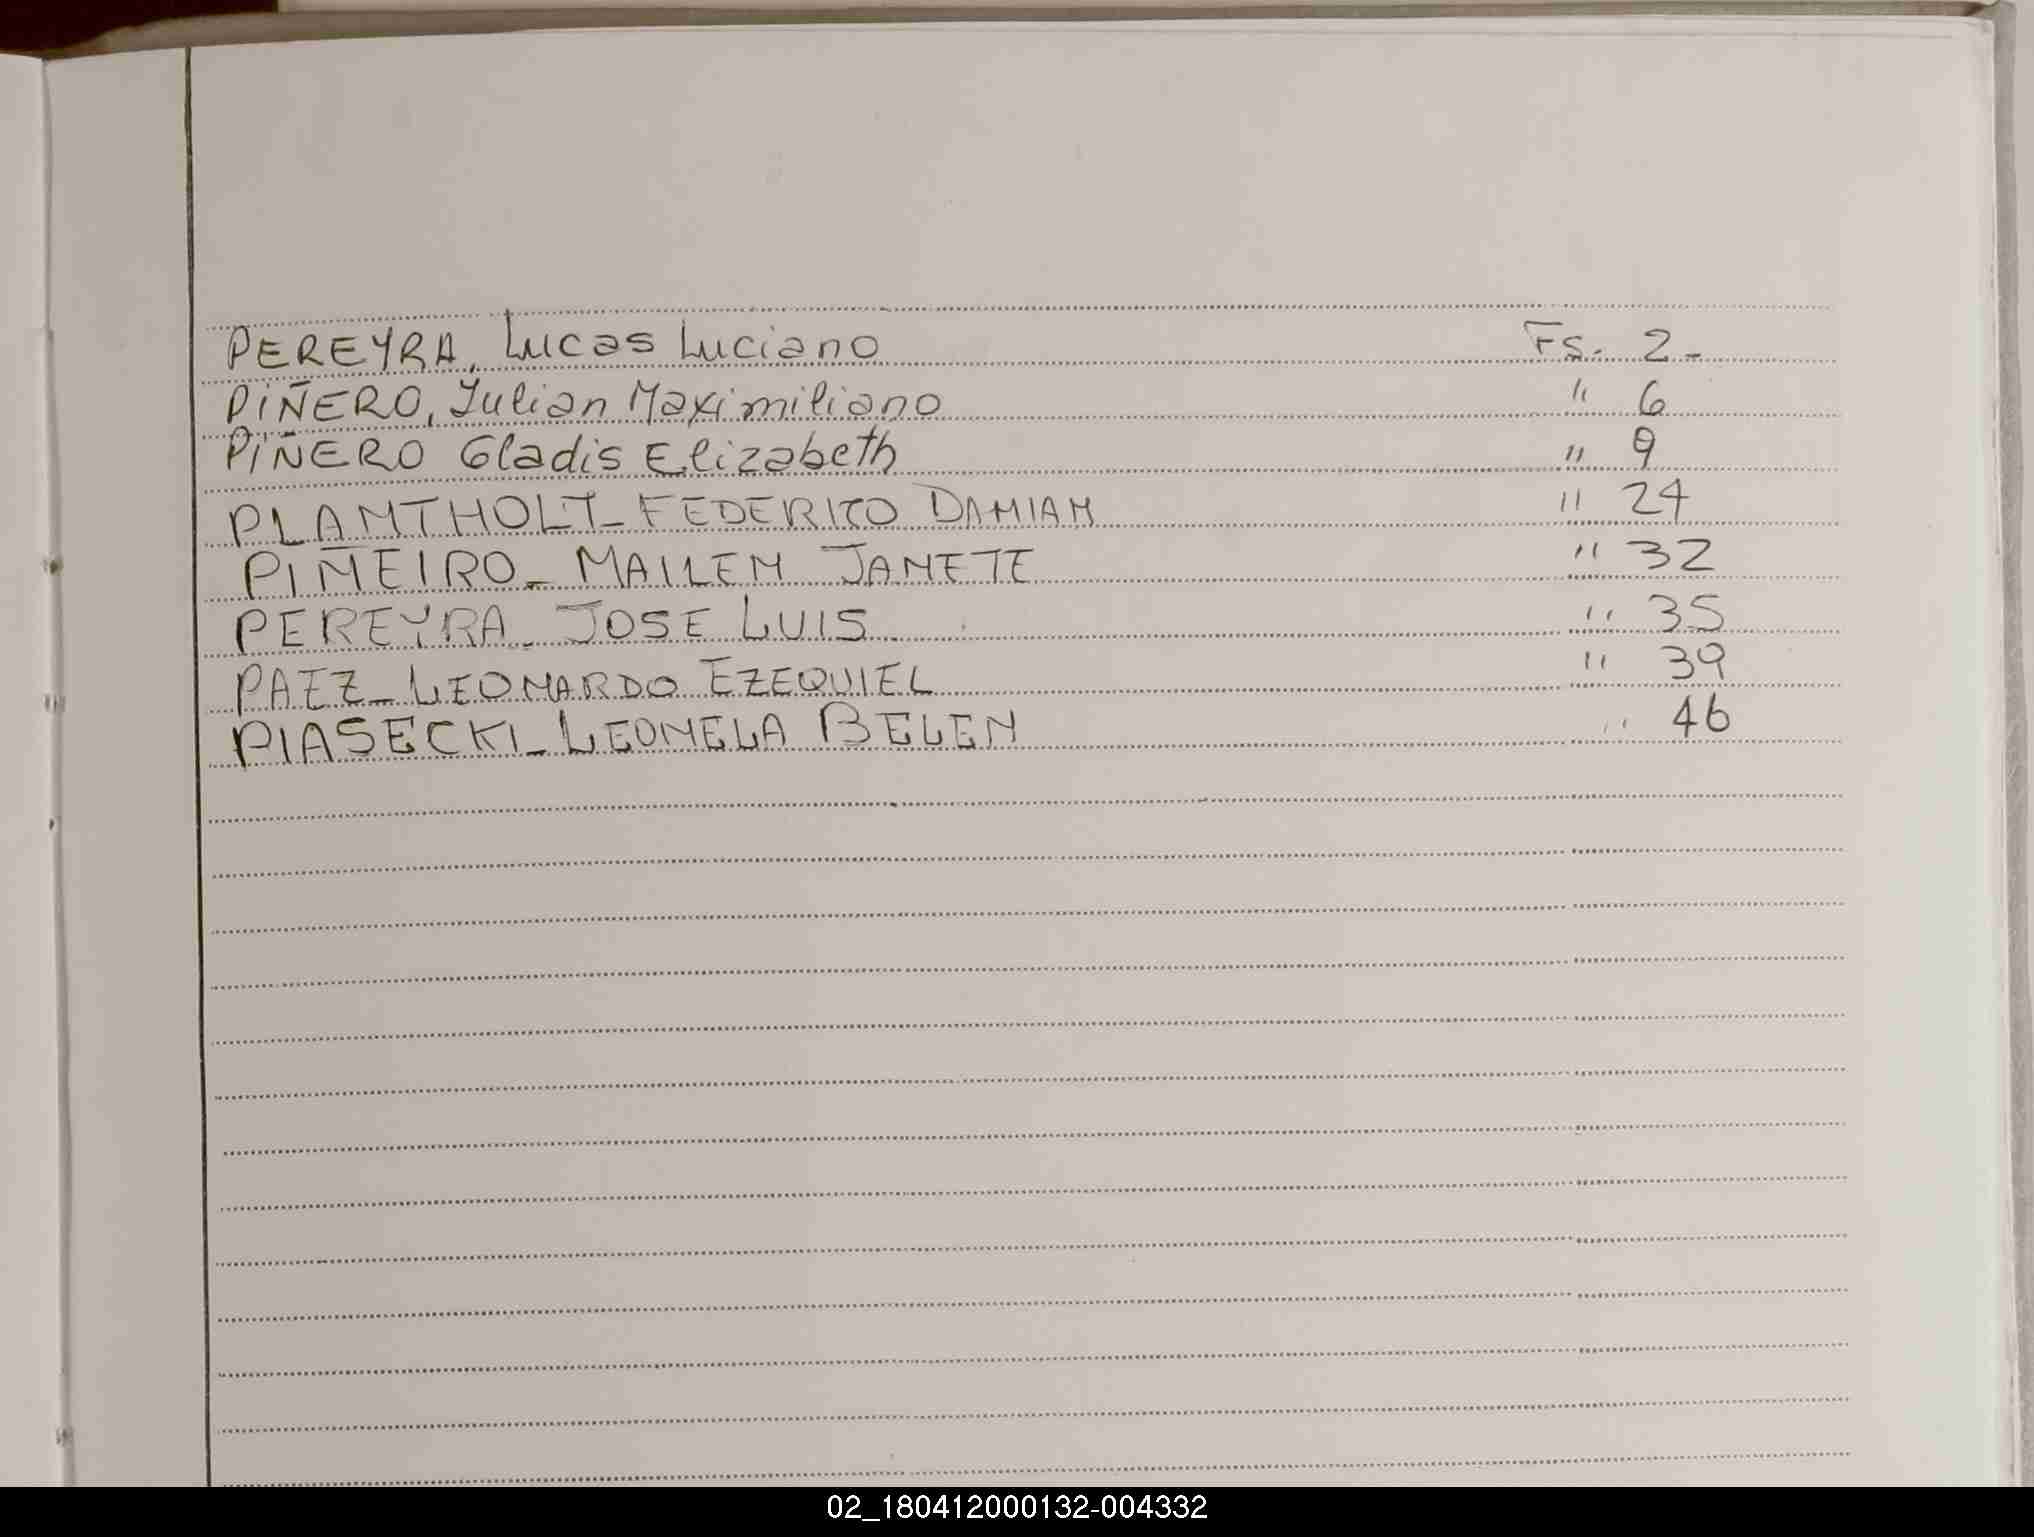 PEREYRA, Lucas Luciano Fs. 2-
PIÑERO, Julian Maximiliano " 6
PIÑERO Gladis Elizabeth " 9
PLANTHOLT- FEDERICO DAMIAN " 24
PIÑEIRO- MAILEN JANETE " 32
PEREYRA- JOSE LUIS " 35
PAEZ- LEONARDO EZEQUIEL " 39
PIASECKI- LEONELA BELEN " 46
02_180412000132-004332